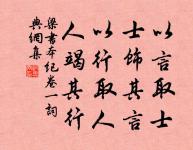 以言取士
士飾其言
以行取人
人竭其行
梁書本紀卷一詞
典網集